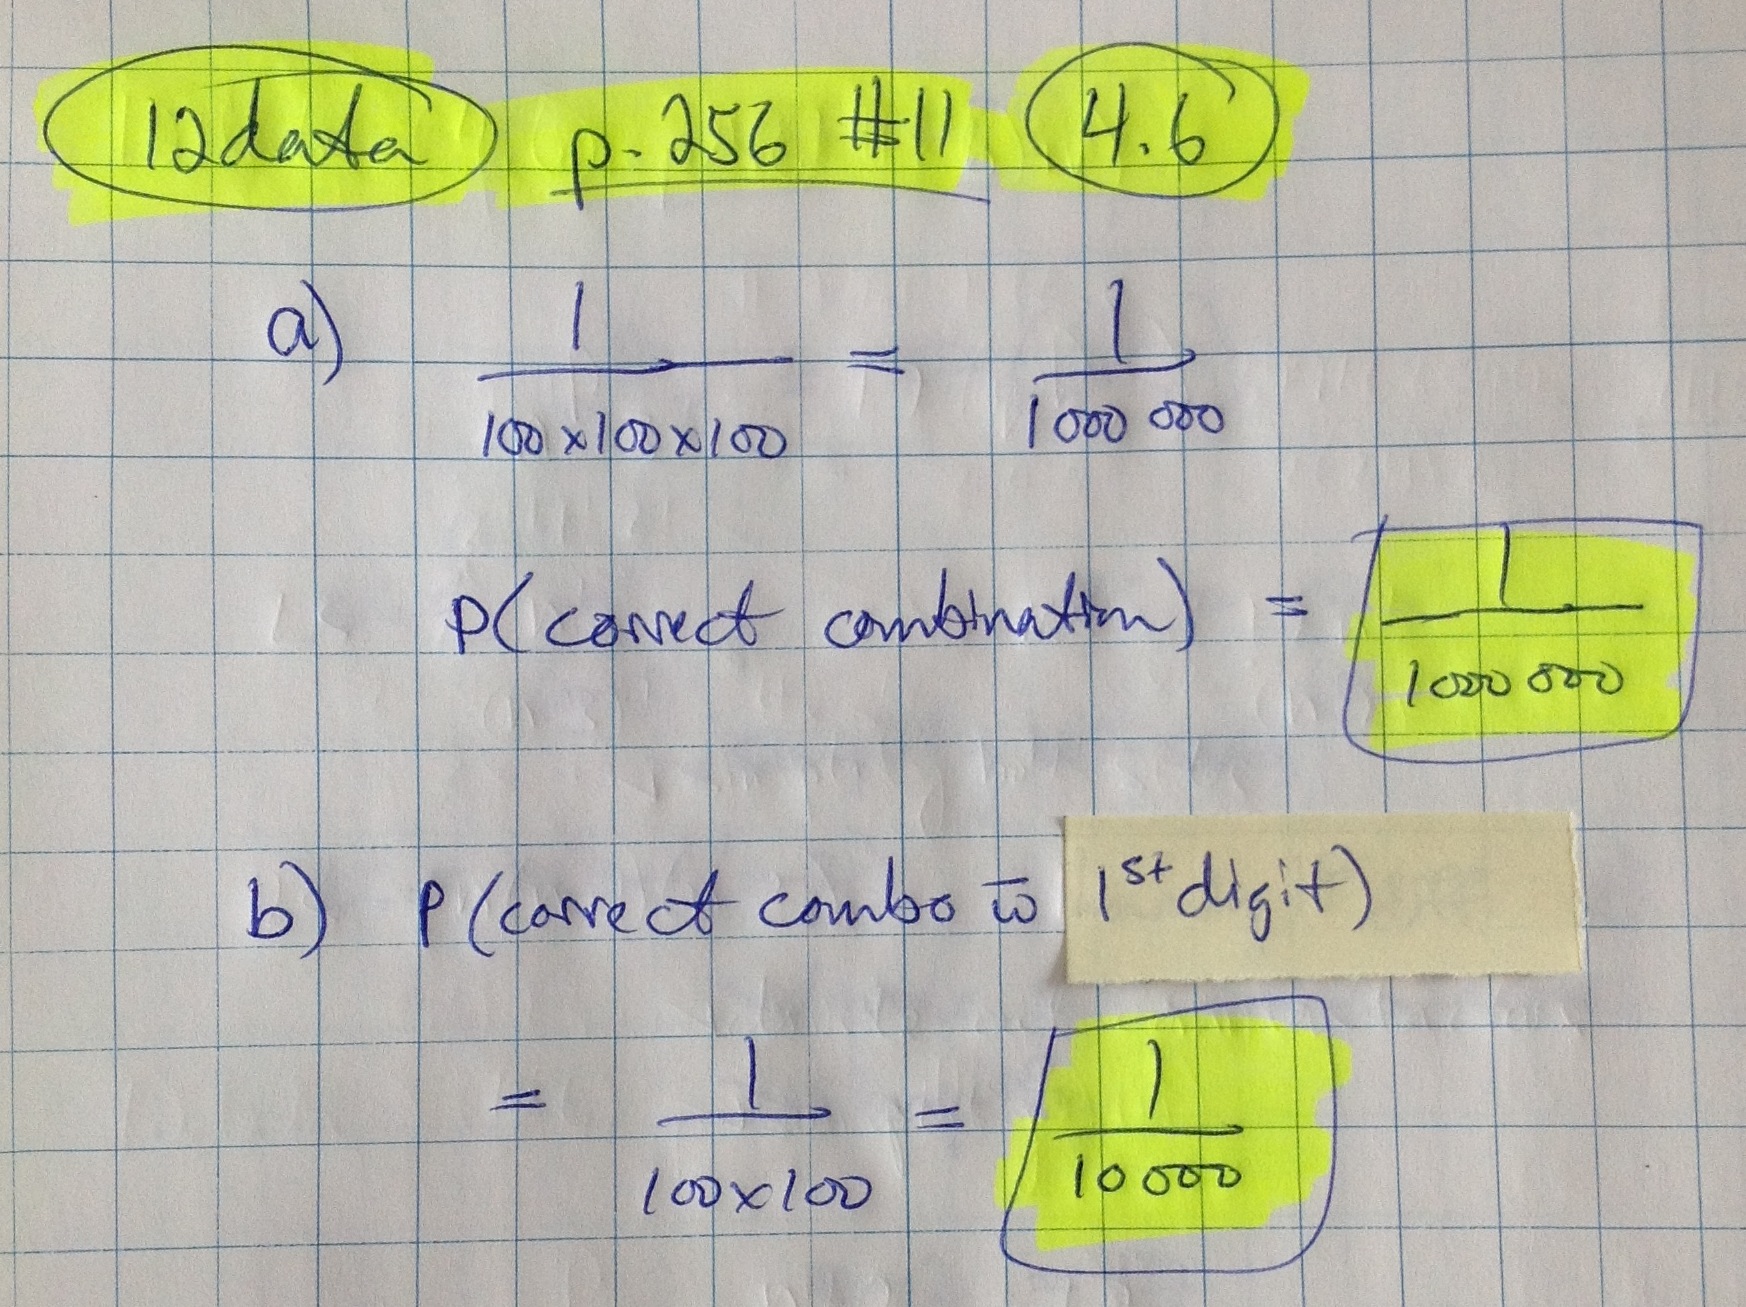 12data p. 256 #11 4.6
a) 1 / 100×100×100 = 1 / 1 000 000
P(correct combination) = 1 / 1 000 000
b) P(correct combo w̄ 1st digit)
= 1 / 100×100 = 1 / 10 000